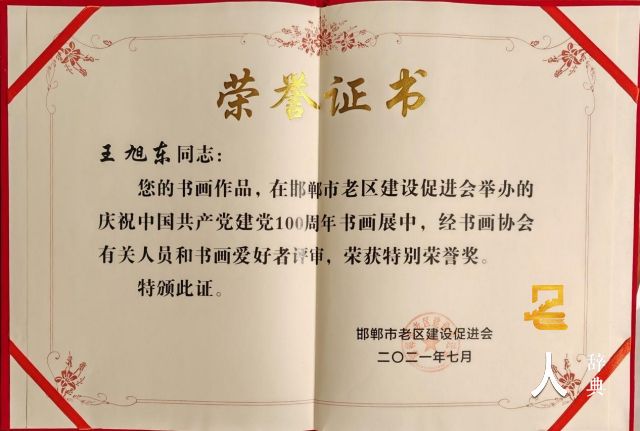 荣誉证书
王旭东同志：
您的书画作品，在邯郸市老区建设促进会举办的
庆祝中国共产党建党100周年书画展中，经书画协会
有关人员和书画爱好者评审，荣获特别荣誉奖。
特颁此证。
邯郸市老区建设促进会
二〇二一年七月
人 辞典